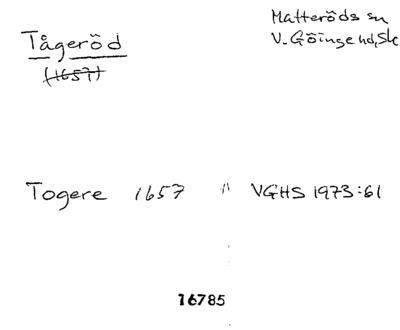 Tågeröd
(1657)
Matteröds sn
V. Göinge hd, Sk
Togere 1657 " VGHS 1973:61
16785